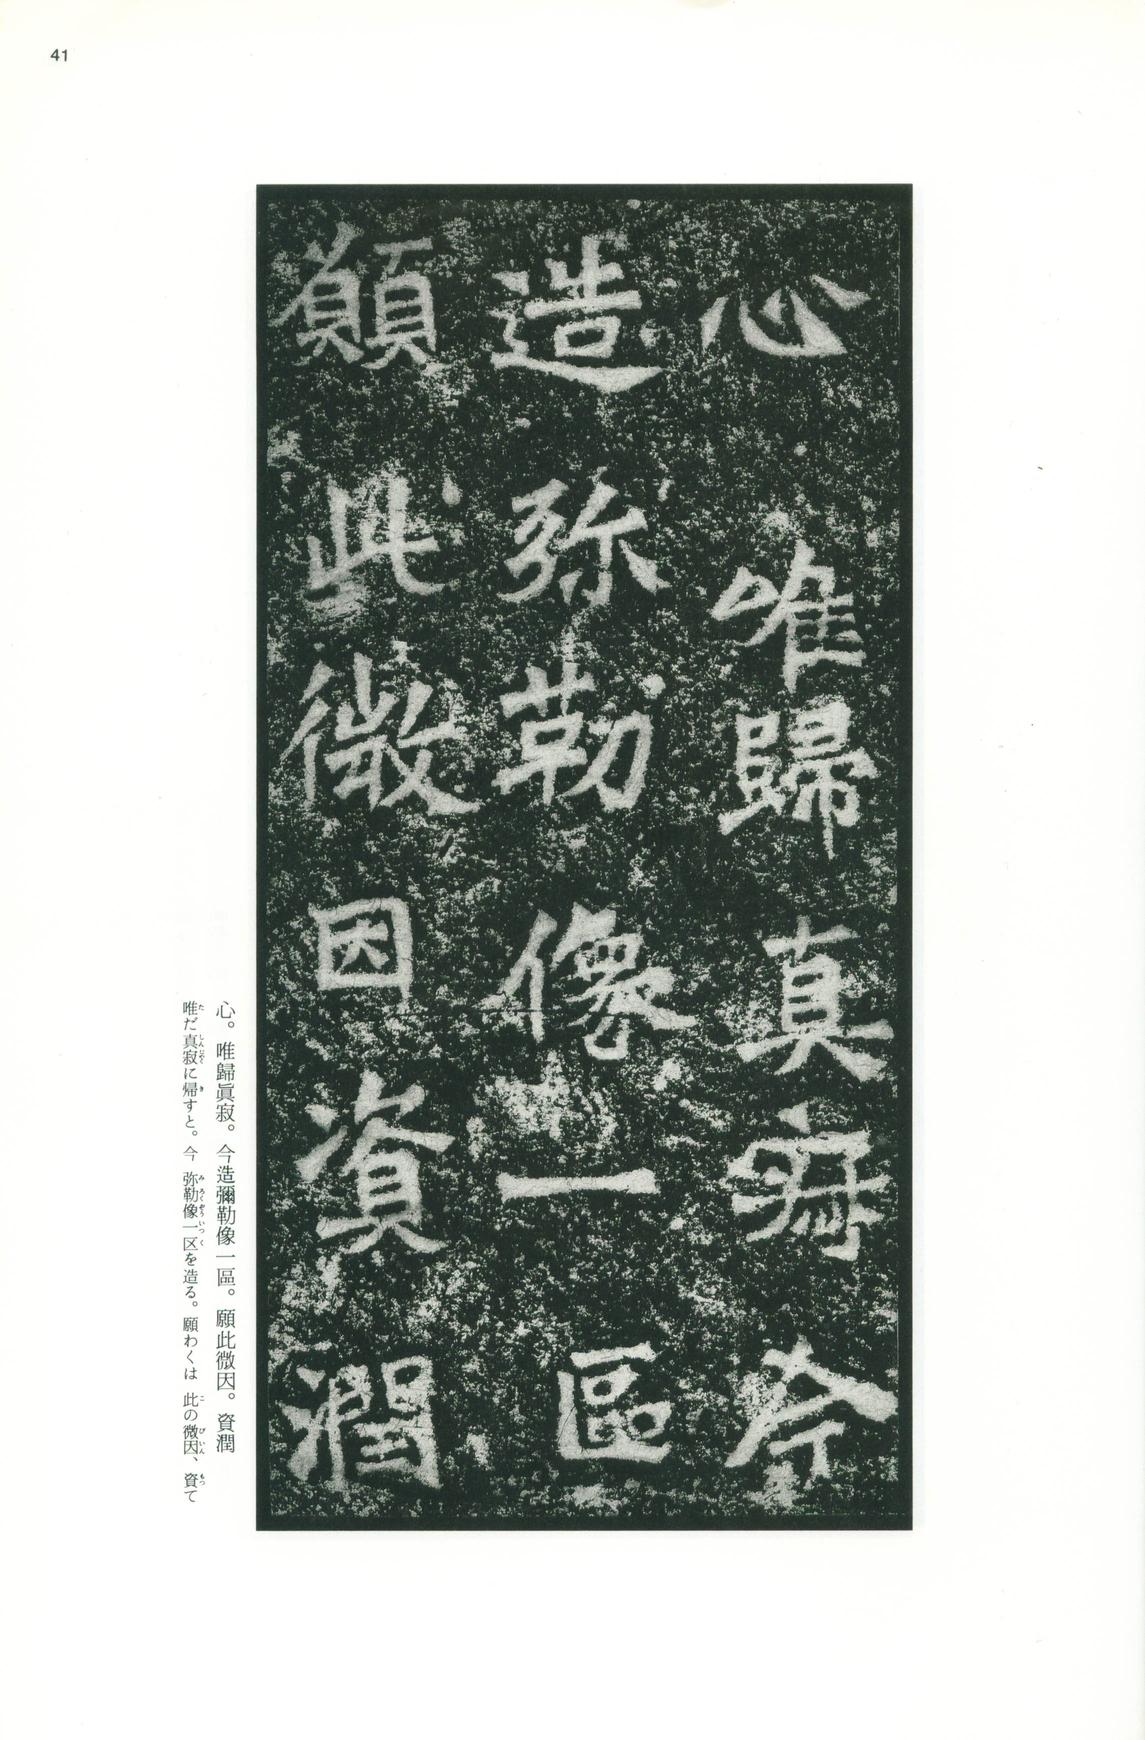 41
心唯歸真寂今
造弥勒像一區
願此微因資潤
心。唯歸眞寂。今造彌勒像一區。願此微因。資潤
唯だ真寂に帰すと。今 弥勒像一区を造る。願わくは 此の微因、資て